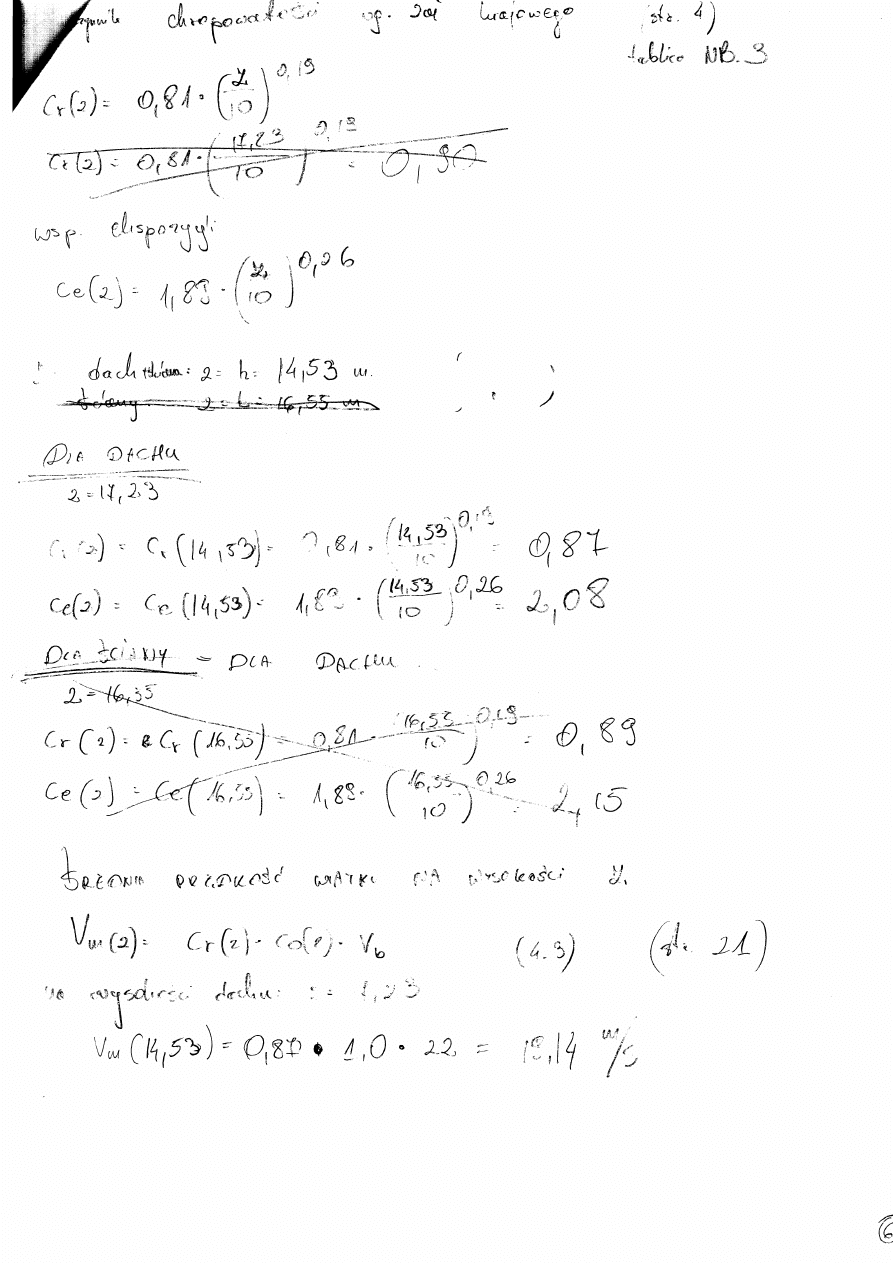 chropowatości wg. zał krajowego (str. 4)
tablica NB.3
Cr(z)= 0,81·(z/10)^0,19
Cr(z)= 0,81·(17,23/10)^0,19 = 0,90
wsp. ekspozycji
Ce(z)= 1,89·(z/10)^0,26
dach z= h= 14,53 m.
ściany z= h= 16,55 m
DLA DACHU
z=17,23
Cr(z) = Cr(14,53)= 0,81·(14,53/10)^0,19 = 0,87
Ce(z) = Ce(14,53)= 1,89·(14,53/10)^0,26 = 2,08
DLA ŚCIANY = DLA DACHU
z=16,55
Cr(z)= Cr(16,55)= 0,81·(16,55/10)^0,19 = 0,89
Ce(z) = Ce(16,55)= 1,89·(16,55/10)^0,26 = 2,15
ŚREDNIA PRĘDKOŚĆ WIATRU NA WYSOKOŚCI z
Vm(z)= Cr(z)·Co(z)·Vb (4.3) (str. 21)
na wysokości dachu:
Vm(14,53)= 0,87·1,0·22 = 19,14 m/s
6